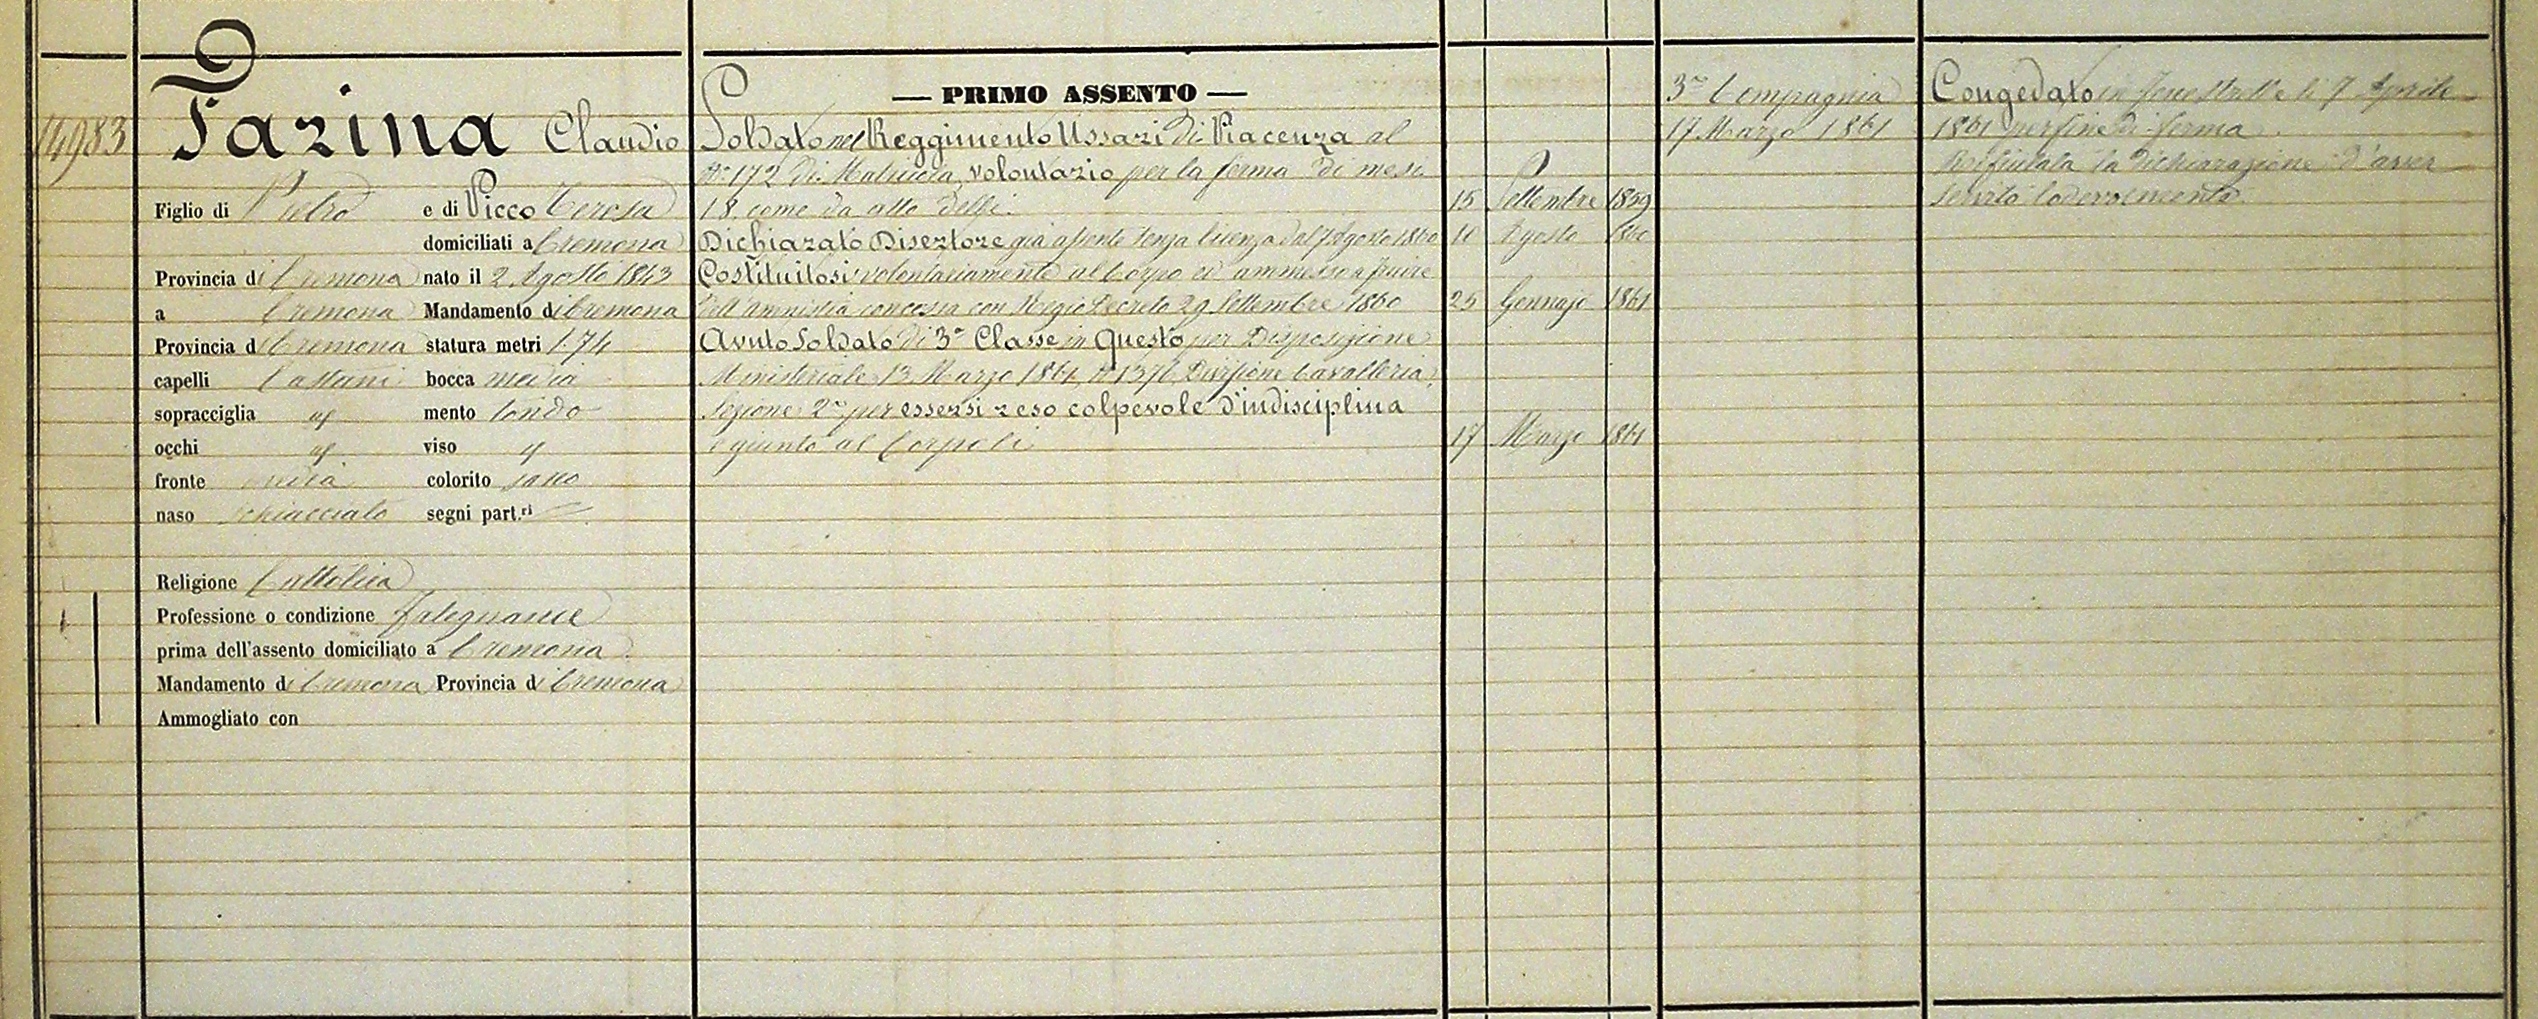 14983
Farina Claudio
Figlio di Pietro e di Picco Teresa
domiciliati a Cremona
Provincia di Cremona nato il 2 Agosto 1843
a Cremona Mandamento di Cremona
Provincia di Cremona statura metri 1.74
capelli Castani bocca media
sopracciglia id mento tondo
occhi id viso id
fronte media colorito sano
naso schiacciato segni part.ri
Religione Cattolica
Professione o condizione falegname
prima dell'assento domiciliato a Cremona
Mandamento di Cremona Provincia di Cremona
Ammogliato con
— PRIMO ASSENTO —
Soldato nel Reggimento Ussari di Piacenza al
N° 172 di Matricola, volontario per la ferma di mesi
18 come da atto delli 15 Settembre 1859
Dichiarato Disertore già assente senza licenza dal 7 Agosto 1860 10 Agosto 1860
Costituitosi volontariamente al Corpo ed ammesso a fruire
dell'amnistia concessa con Regio Decreto 29 Settembre 1860 25 Gennajo 1861
Avuto Soldato di 3a Classe in Questo per Disposizione
Ministeriale 13 Marzo 1861, N° Divisione Cavalleria,
Sezione 2a per essersi reso colpevole d'indisciplina
e giunto al Corpo li 17 Marzo 1861
3a Compagnia
17 Marzo 1861
Congedato in Fenestrelle li 7 Aprile
1861 per fine di ferma.
Rifiutata la dichiarazione d'aver
servito lodevolmente.